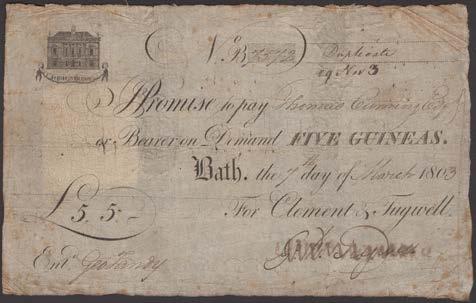 No. B 7572 Duplicate
29 Nov 3
I Promise to pay Thomas Cunning Esq
or Bearer on Demand FIVE GUINEAS.
Bath. the 7th day of March 1803
£5,,5,,— For Clement & Tugwell.
Entd. Geo Handy